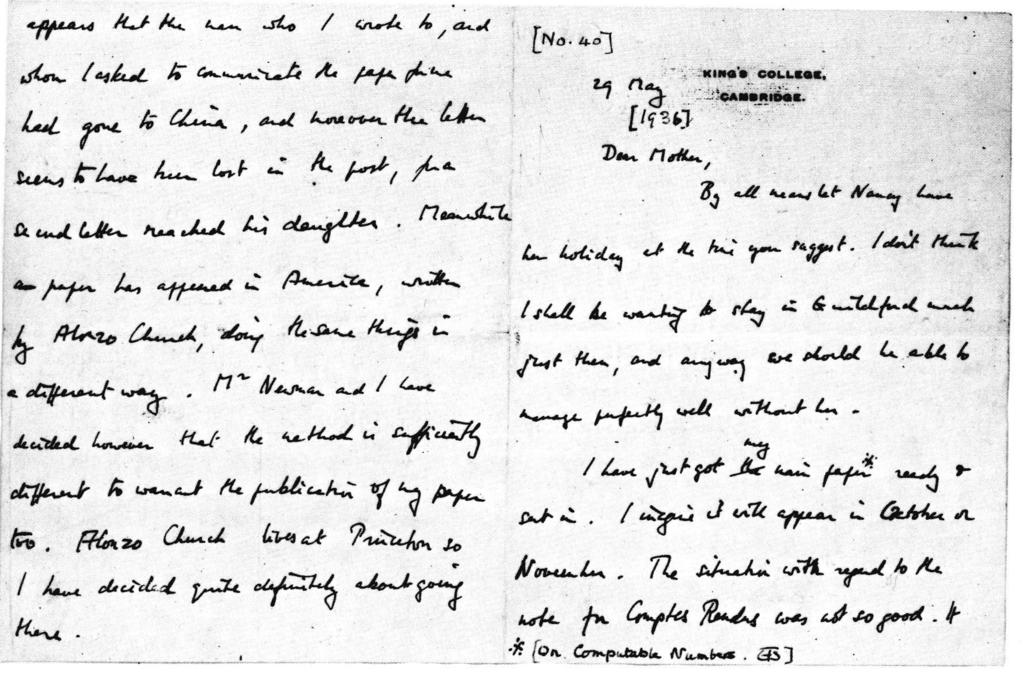 [No. 40]
KING'S COLLEGE,
CAMBRIDGE.
29 May
[1936]
Dear Mother,
By all means let Nancy have
her holiday at the time you suggest. I don't think
I shall be wanting to stay in Guildford much
just then, and anyway we should be able to
manage perfectly well without her.
my
I have just got the main paper* ready &
sent in. I imagine it will appear in October or
November. The situation with regard to the
note for Comptes Rendus was not so good. It
* [On Computable Numbers. ]
appears that the man who I wrote to, and
whom I asked to communicate the paper for me
had gone to China, and moreover the letter
seems to have been lost in the post, for a
second letter reached his daughter. Meanwhile
a paper has appeared in America, written
by Alonzo Church, doing the same things in
a different way. Mr Newman and I have
decided however that the method is sufficiently
different to warrant the publication of my paper
too. Alonzo Church lives at Princeton so
I have decided quite definitely about going
there.